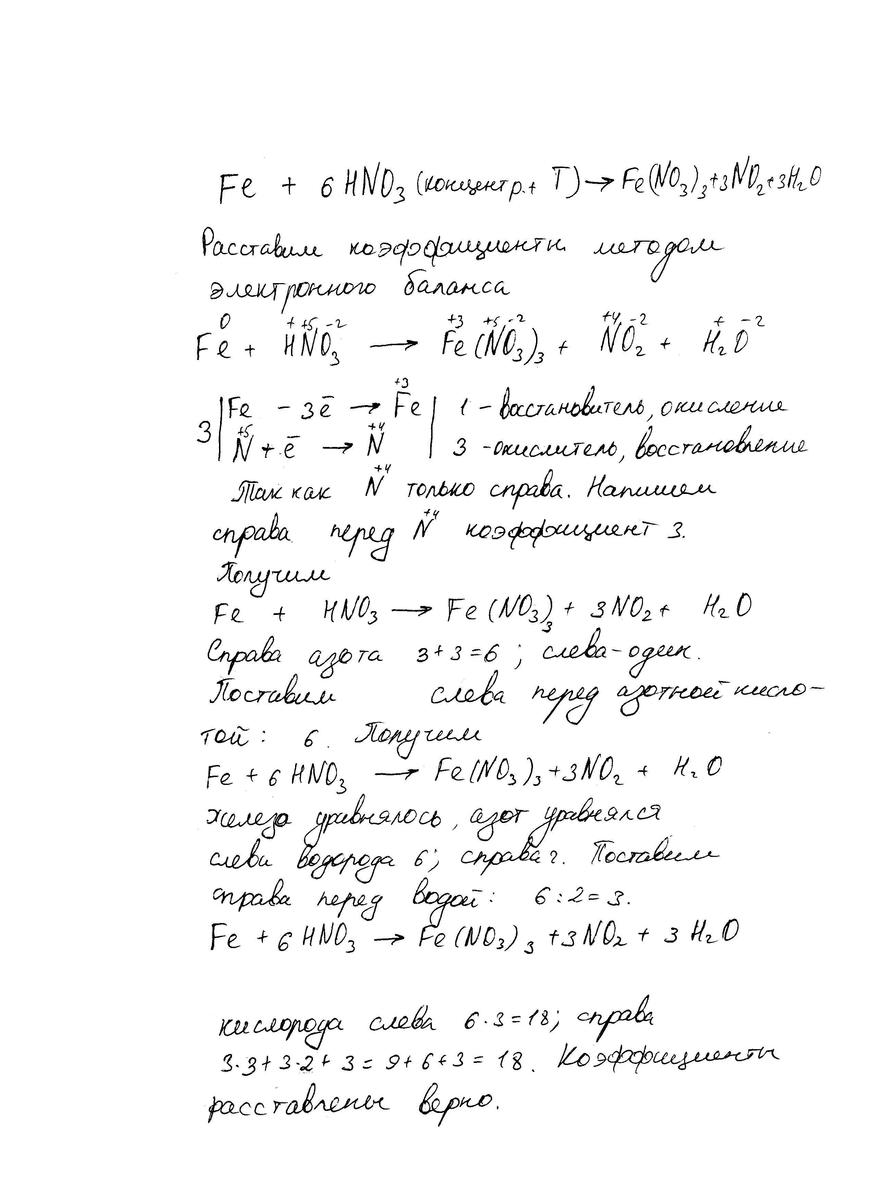 Fe + 6 HNO₃ (концентр. + T) → Fe(NO₃)₃+3NO₂+3H₂O
Расставим коэффициенты методом
электронного баланса
0 + +5 -2 +3 +5 -2 +4 -2 + -2
Fe + HNO₃ → Fe(NO₃)₃ + NO₂ + H₂O
+3
3 | Fe - 3ē → Fe | 1 - восстановитель, окисление
+5 +4
N + ē → N | 3 - окислитель, восстановление
+4
Так как N только справа. Напишем
+4
справа перед N коэффициент 3.
Получим
Fe + HNO₃ → Fe(NO₃)₃ + 3NO₂ + H₂O
Справа азота 3+3=6; слева-один.
Поставим слева перед азотной кисло-
той: 6. Получим
Fe + 6 HNO₃ → Fe(NO₃)₃ +3NO₂ + H₂O
железо уравнялось, азот уравнялся
слева водорода 6; справа 2. Поставим
справа перед водой: 6:2=3.
Fe + 6 HNO₃ → Fe(NO₃)₃ +3NO₂ + 3 H₂O
кислорода слева 6·3=18; справа
3·3+3·2+3= 9+6+3=18. Коэффициенты
расставлены верно.